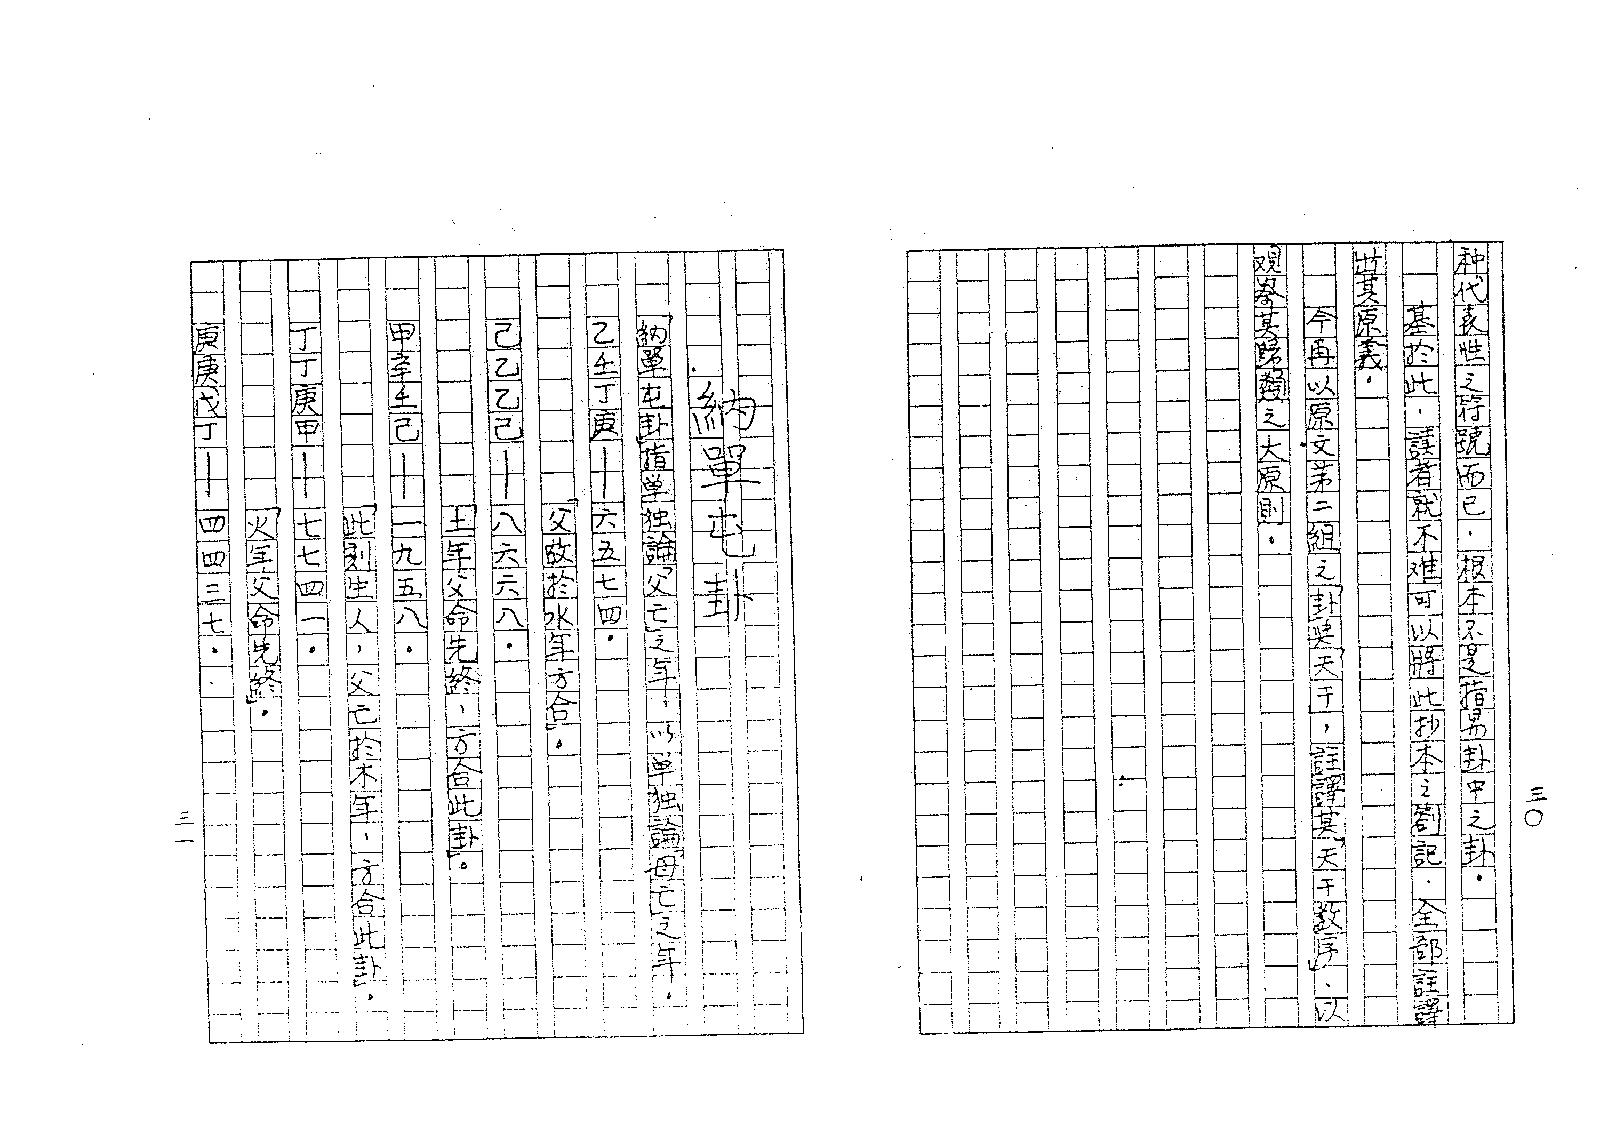 种代表性之符號而已．根本不是指易卦中之卦．
基於此．讀者就不难可以將此抄本之劄記．全部註譯
出其原義．
今再以原文第二組之「卦与天干，註譯其「天干数序」．以
观察其歸類之大原則．
三〇
納單屯卦
「納單屯卦」指单独論「父亡」之年．以单独論「母亡」之年．
乙壬丁庚——六五七四．
「父故於水年方合」．
己乙乙己——八六六八．
「土年父命先終，方合此卦」．
甲辛壬己——一九五八．
「此刻生人，父亡於木年，方合此卦」．
丁丁庚甲——七七四一．
「火年父命先終」．
庚庚戊丁——四四三七．
三一